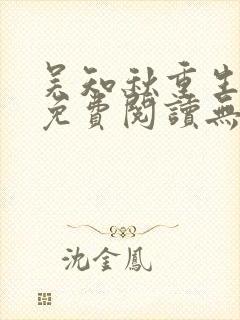 吴知秋重生
免費閱讀無
沈金鳳